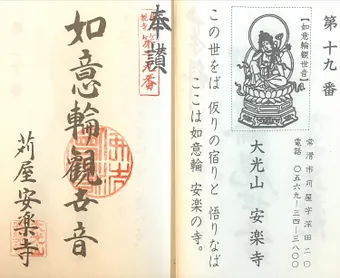 第十九番
【如意輪観世音】
常滑市苅屋字深田二〇
電話 〇五六九―三四―三八〇〇
大光山 安楽寺
この世をば 仮りの宿りと 悟りなば
ここは如意輪 安楽の寺。
奉讃
如意輪觀世音
苅屋安楽寺